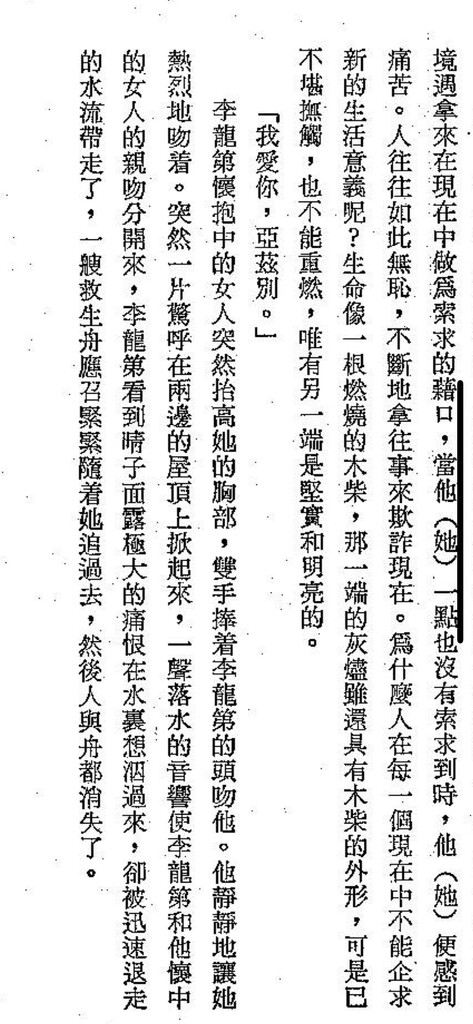 境遇拿來在現在中做爲索求的藉口，當他（她）一點也沒有索求到時，他（她）便感到
痛苦。人往往如此無恥，不斷地拿往事來欺詐現在。爲什麼人在每一個現在中不能企求
新的生活意義呢？生命像一根燃燒的木柴，那一端的灰燼雖還具有木柴的外形，可是已
不堪撫觸，也不能重燃，唯有另一端是堅實和明亮的。
「我愛你，亞茲別。」
李龍第懷抱中的女人突然抬高她的胸部，雙手捧着李龍第的頭吻他。他靜靜地讓她
熱烈地吻着。突然一片驚呼在兩邊的屋頂上掀起來，一聲落水的音響使李龍第和他懷中
的女人的親吻分開來，李龍第看到晴子面露極大的痛恨在水裏想泅過來，卻被迅速退走
的水流帶走了，一艘救生舟應召緊緊隨着她追過去，然後人與舟都消失了。